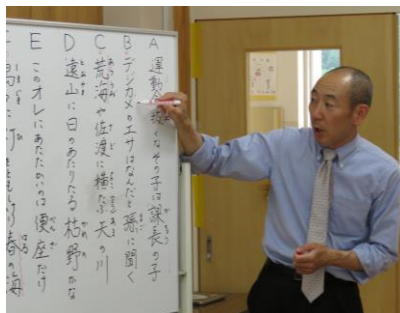 A 運動会抜くなその子は課長の子
B デジカメのエサはなんだと孫に聞く
C 荒海や佐渡に横たふ天の川
D 遠山に日のあたりたる枯野かな
E このオレにあたたかいのは便座だけ
島々に灯をともしけり春の海